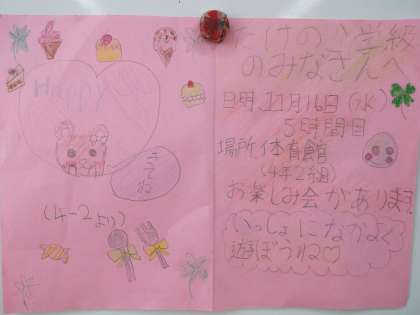 Happy
きてね
(4-2より)
たけのこ学級
のみなさんへ
日時 11月16日(水)
5時間目
場所 体育館
(4年2組)
お楽しみ会があります
いっしょになかよく
遊ぼうね♡